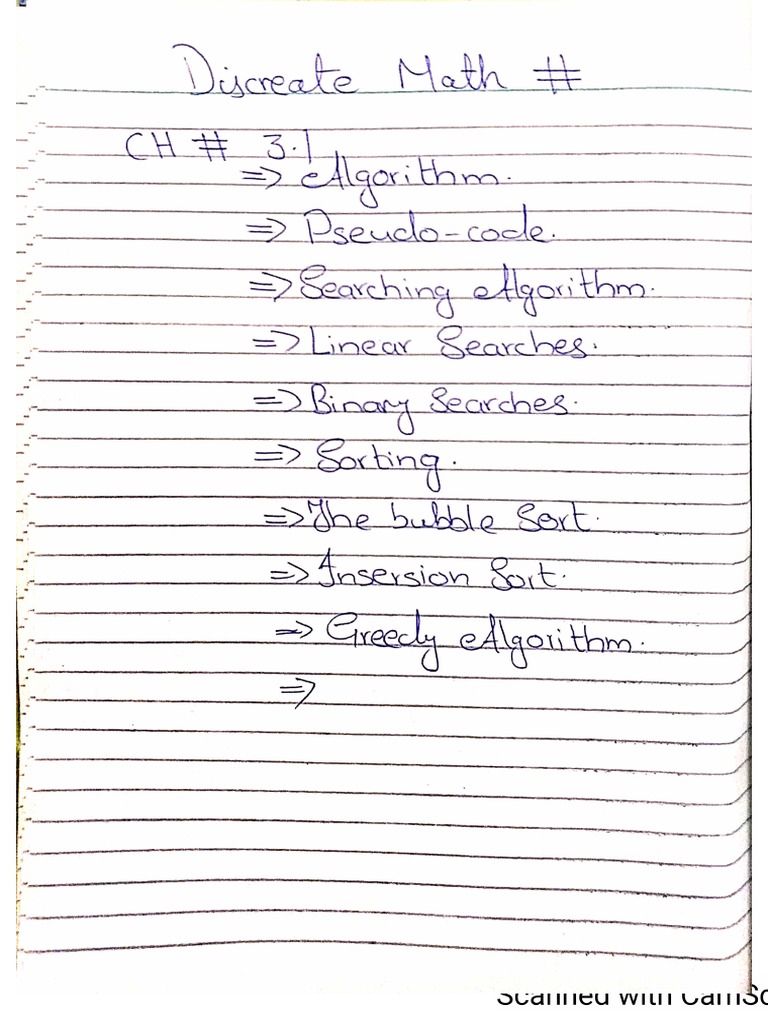 Discreate Math #
CH # 3.1
=> Algorithm.
=> Pseudo-code.
=> Searching Algorithm.
=> Linear Searches.
=> Binary Searches.
=> Sorting.
=> The bubble Sort.
=> Insersion Sort.
=> Greedy Algorithm.
=>
Scanned with CamSc